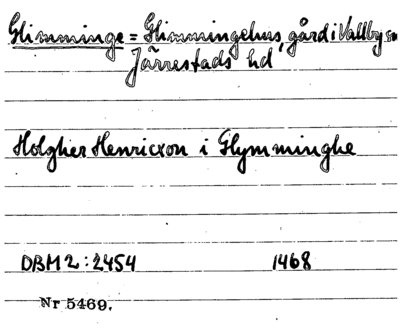 Glimminge = Glimmingehus, gård i Vallby sn
Järrestads hd
Holgher Henricxon i Glymminghe
DBM 2:2454 1468
Nr 5469.